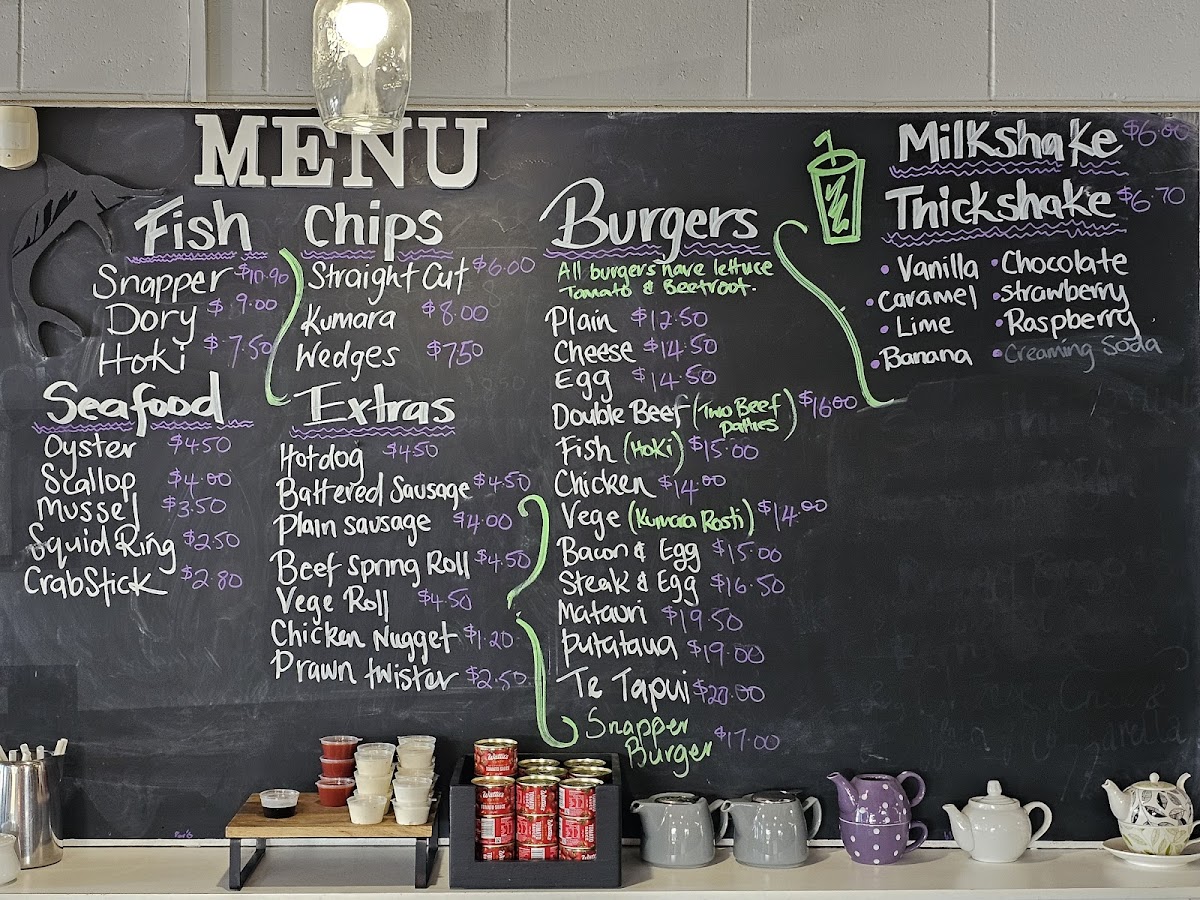 MENU
Fish
Snapper $10.90
Dory $9.00
Hoki $7.50
Seafood
Oyster $4.50
Scallop $4.00
Mussel $3.50
Squid Ring $2.50
CrabStick $2.80
Chips
Straight Cut $6.00
Kumara $8.00
Wedges $7.50
Extras
Hotdog $4.50
Battered Sausage $4.50
Plain sausage $4.00
Beef Spring Roll $4.50
Vege Roll $4.50
Chicken Nugget $1.20
Prawn twister $2.50
Burgers
All burgers have lettuce
Tomato & Beetroot.
Plain $12.50
Cheese $14.50
Egg $14.50
Double Beef (Two Beef patties) $16.00
Fish (Hoki) $15.00
Chicken $14.00
Vege (Kumara Rosti) $14.00
Bacon & Egg $15.00
Steak & Egg $16.50
Matauri $19.50
Putataua $19.00
Te Tapui $20.00
Snapper
Burger $17.00
Milkshake $6.00
Thickshake $6.70
• Vanilla • Chocolate
• Caramel • Strawberry
• Lime • Raspberry
• Banana • Creaming Soda
Wattie's